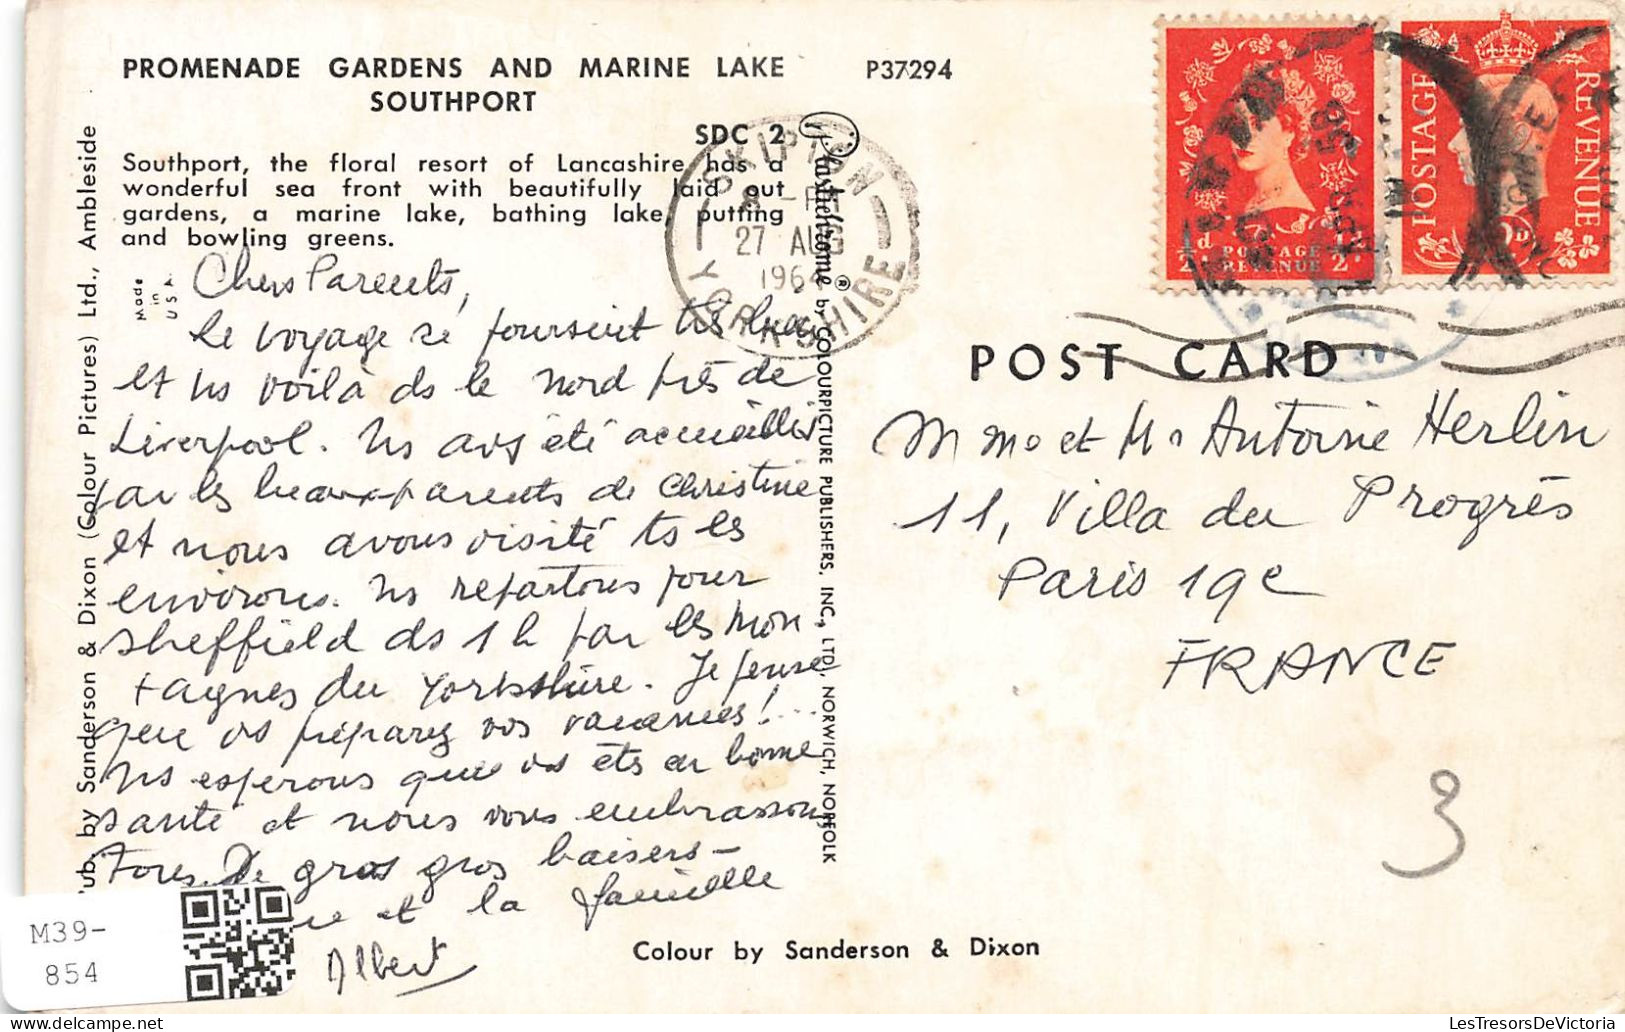 PROMENADE GARDENS AND MARINE LAKE
SOUTHPORT
P37294
SDC 2
Southport, the floral resort of Lancashire has a
wonderful sea front with beautifully laid out
gardens, a marine lake, bathing lake, putting
and bowling greens.
Made
in
U.S.A.
Pub. by Sanderson & Dixon (Colour Pictures) Ltd., Ambleside
Chers Parents,
Le voyage se poursuit très bien
et ns voilà ds le nord près de
Liverpool. Ns avs été accueillis
par les beaux-parents de Christine
et nous avons visité ts les
environs. Ns repartons pour
Sheffield ds 1 h par les mon
tagnes du Yorkshire. Je pense
que vs préparez vos vacances!...
Ns espérons que vs êts en bonne
santé et nous vous embrassons
tous. De gros gros baisers-
et la famille
Albert
SKIPTON
27 AUG
1964
YORKSHIRE
Plastichrome® by COLOURPICTURE PUBLISHERS, INC., LTD, NORWICH, NORFOLK
½d POSTAGE REVENUE ½d
POSTAGE REVENUE
POST CARD
Mme et Mr Antoine Herlin
11, Villa du Progrès
Paris 19e
FRANCE
3
Colour by Sanderson & Dixon
M39-
854
LesTresorsDeVictoria